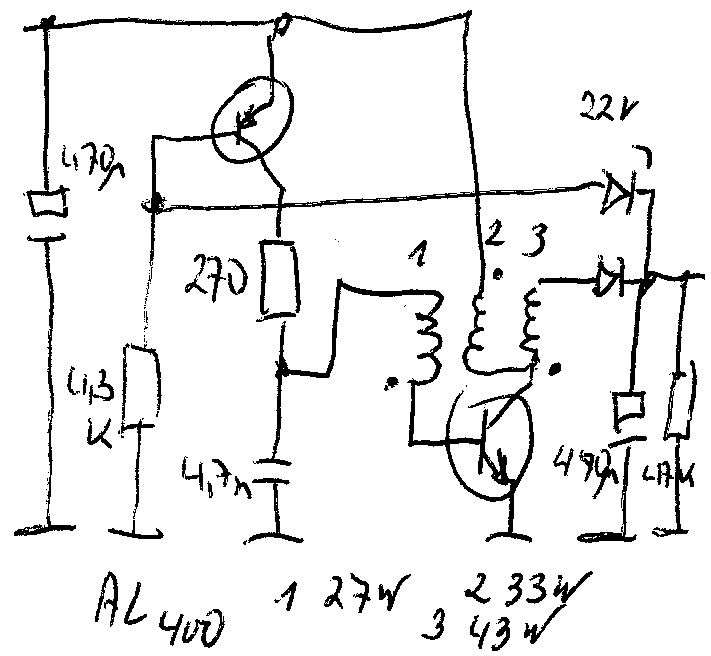 22V
470µ
1 2 3
270
4,3
K
4,7n
470µ 47K
AL400 1 27W 2 33W
3 43W